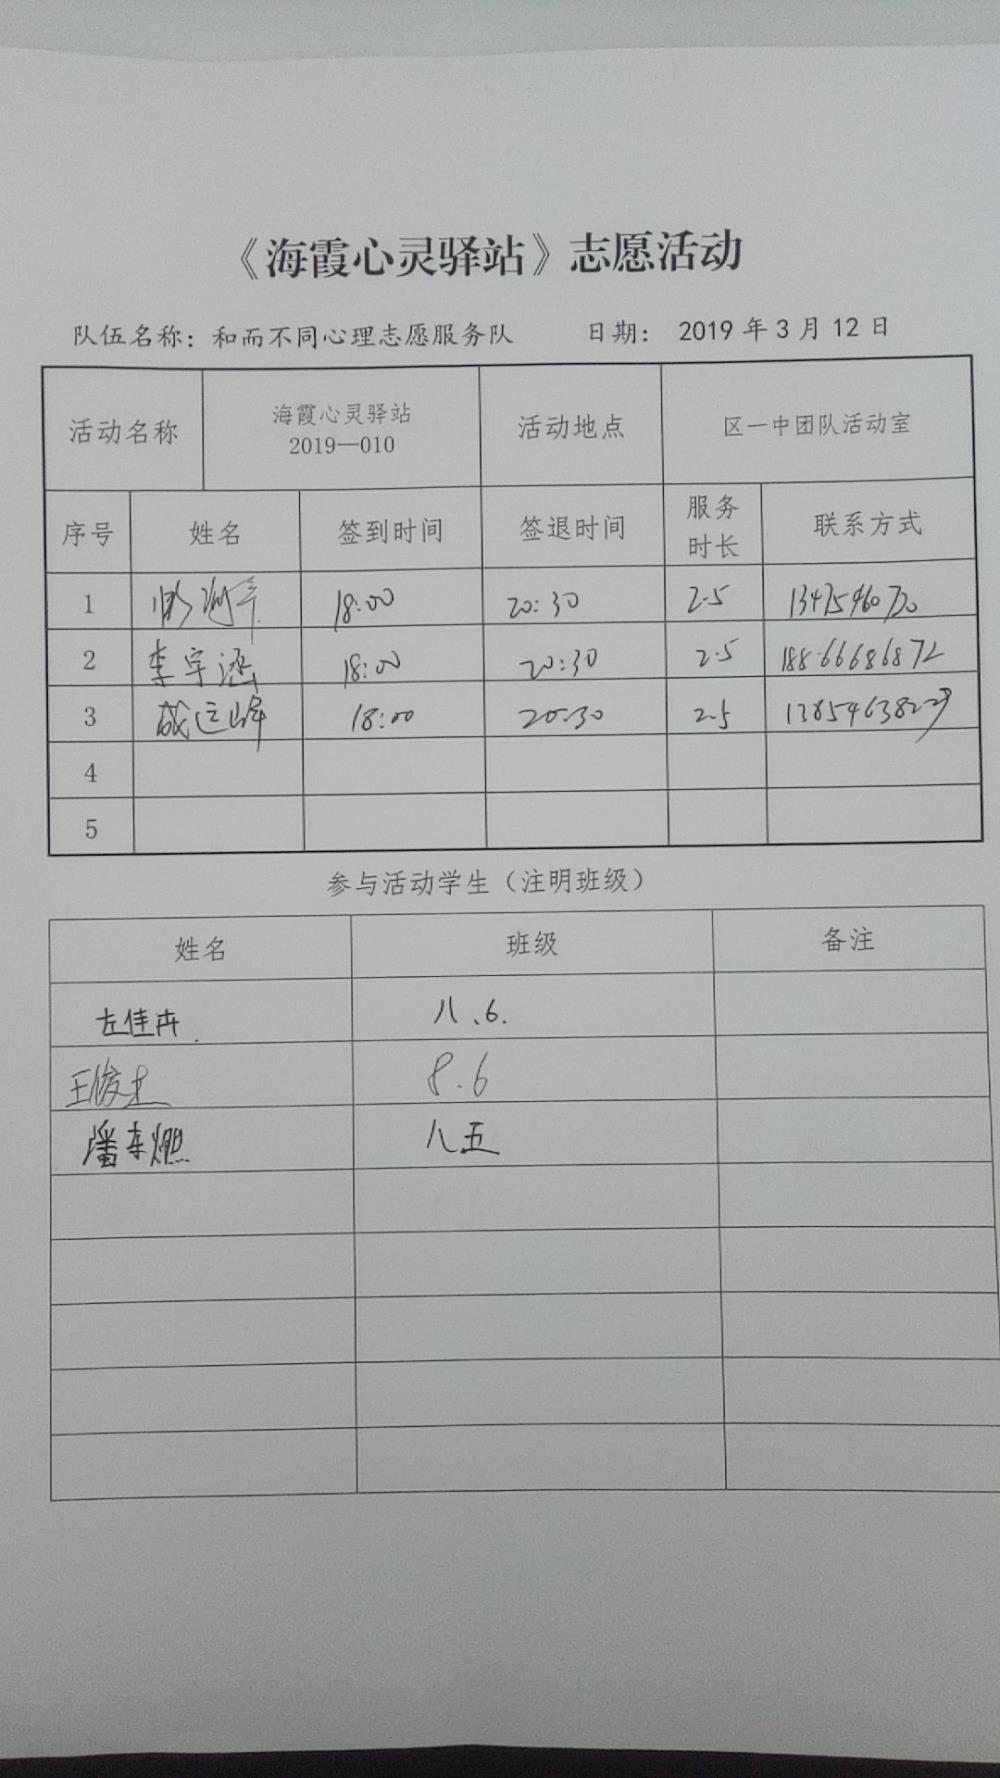 《海霞心灵驿站》志愿活动
队伍名称：和而不同心理志愿服务队 日期： 2019 年 3 月 12 日
活动名称 海霞心灵驿站 2019—010 活动地点 区一中团队活动室
序号 姓名 签到时间 签退时间 服务时长 联系方式
1 18:00 20:30 2.5
2 李宇涵 18:00 20:30 2.5 18866686872
3 18:00 20:30 2.5
4
5
参与活动学生（注明班级）
姓名 班级 备注
左佳卉 八.6.
王俊 8.6
潘 燃 八五